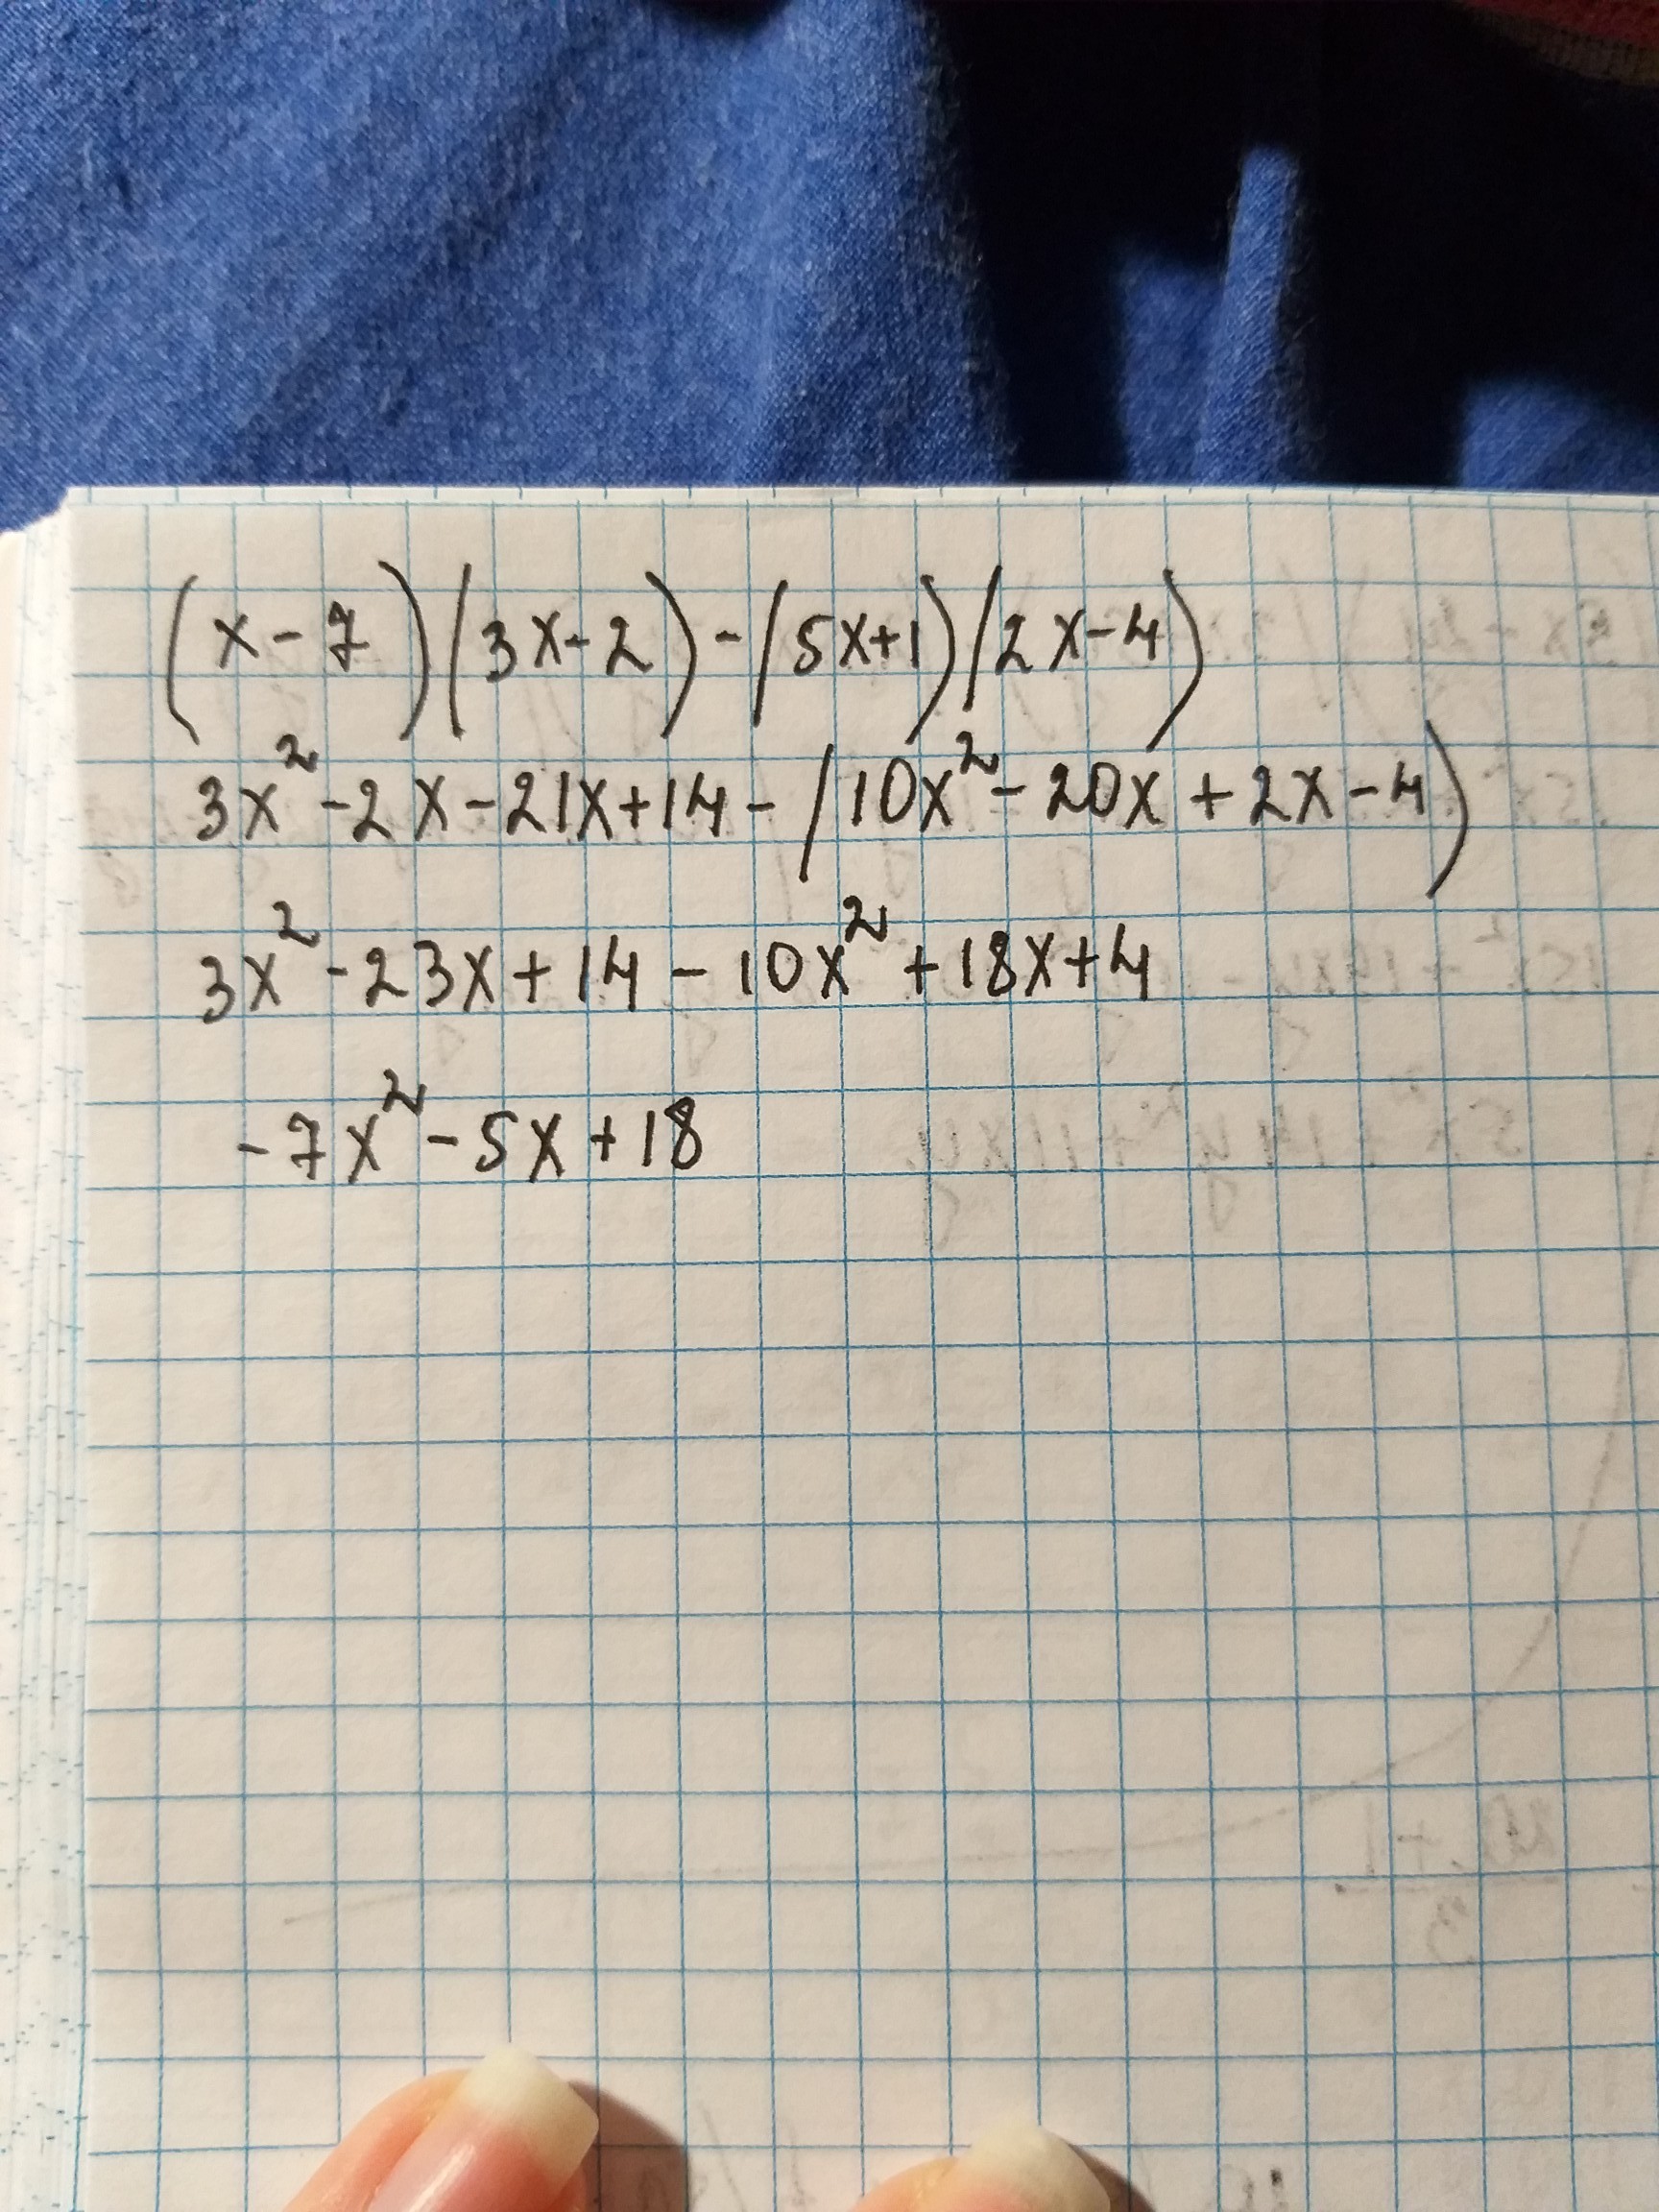 (x-7)(3x-2)-(5x+1)(2x-4)
3x²-2x-21x+14-(10x²-20x+2x-4)
3x²-23x+14-10x²+18x+4
-7x²-5x+18